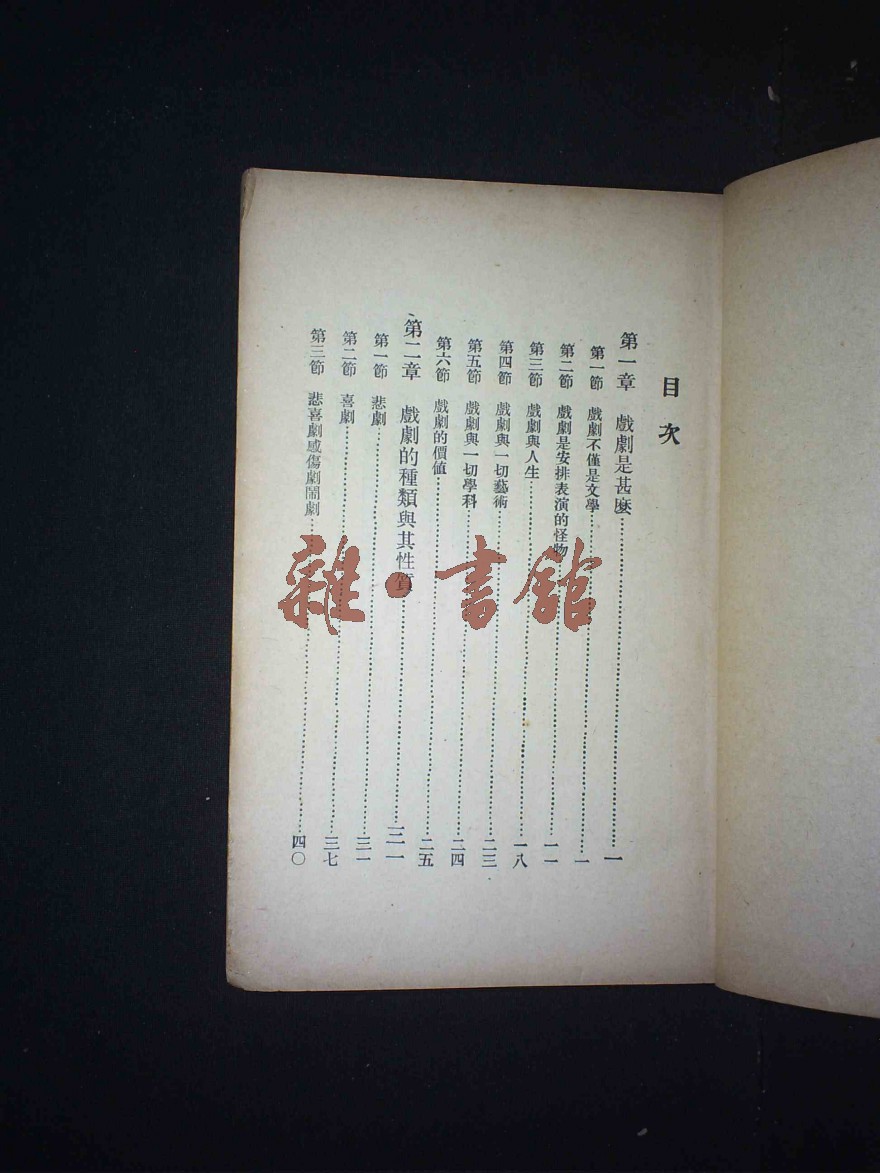 目次
第一章 戲劇是甚麽……一
第一節 戲劇不僅是文學……一
第二節 戲劇是安排表演的怪物……一一
第三節 戲劇與人生……一八
第四節 戲劇與一切藝術……二三
第五節 戲劇與一切學科……二四
第六節 戲劇的價値……二五
第二章 戲劇的種類與其性質……三一
第一節 悲劇……三一
第二節 喜劇……三七
第三節 悲喜劇感傷劇鬧劇……四〇
雜·書館